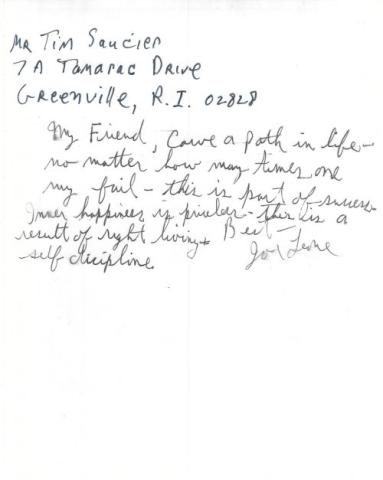 Mr Tim Saucier
7A Tamarac Drive
Greenville, R.I. 02828
My Friend, Carve a path in life -
no matter how may times one
my fail - this is part of success
Inner happiness is priceless - This is a
result of right living + Best -
self discipline